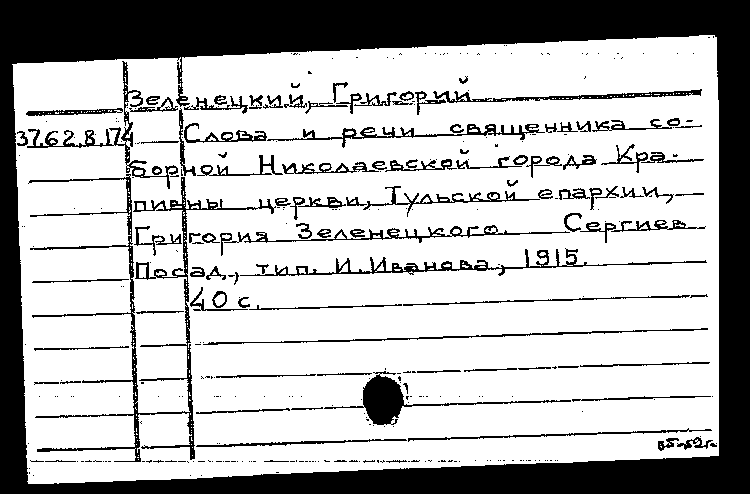 Зеленецкий, Григорий
37.62.8.174 Слова и речи священника со-
борной Николаевской города Кра-
пивны церкви, Тульской епархии,
Григория Зеленецкого. Сергиев
Посад, тип. И.Иванова, 1915.
40 с.